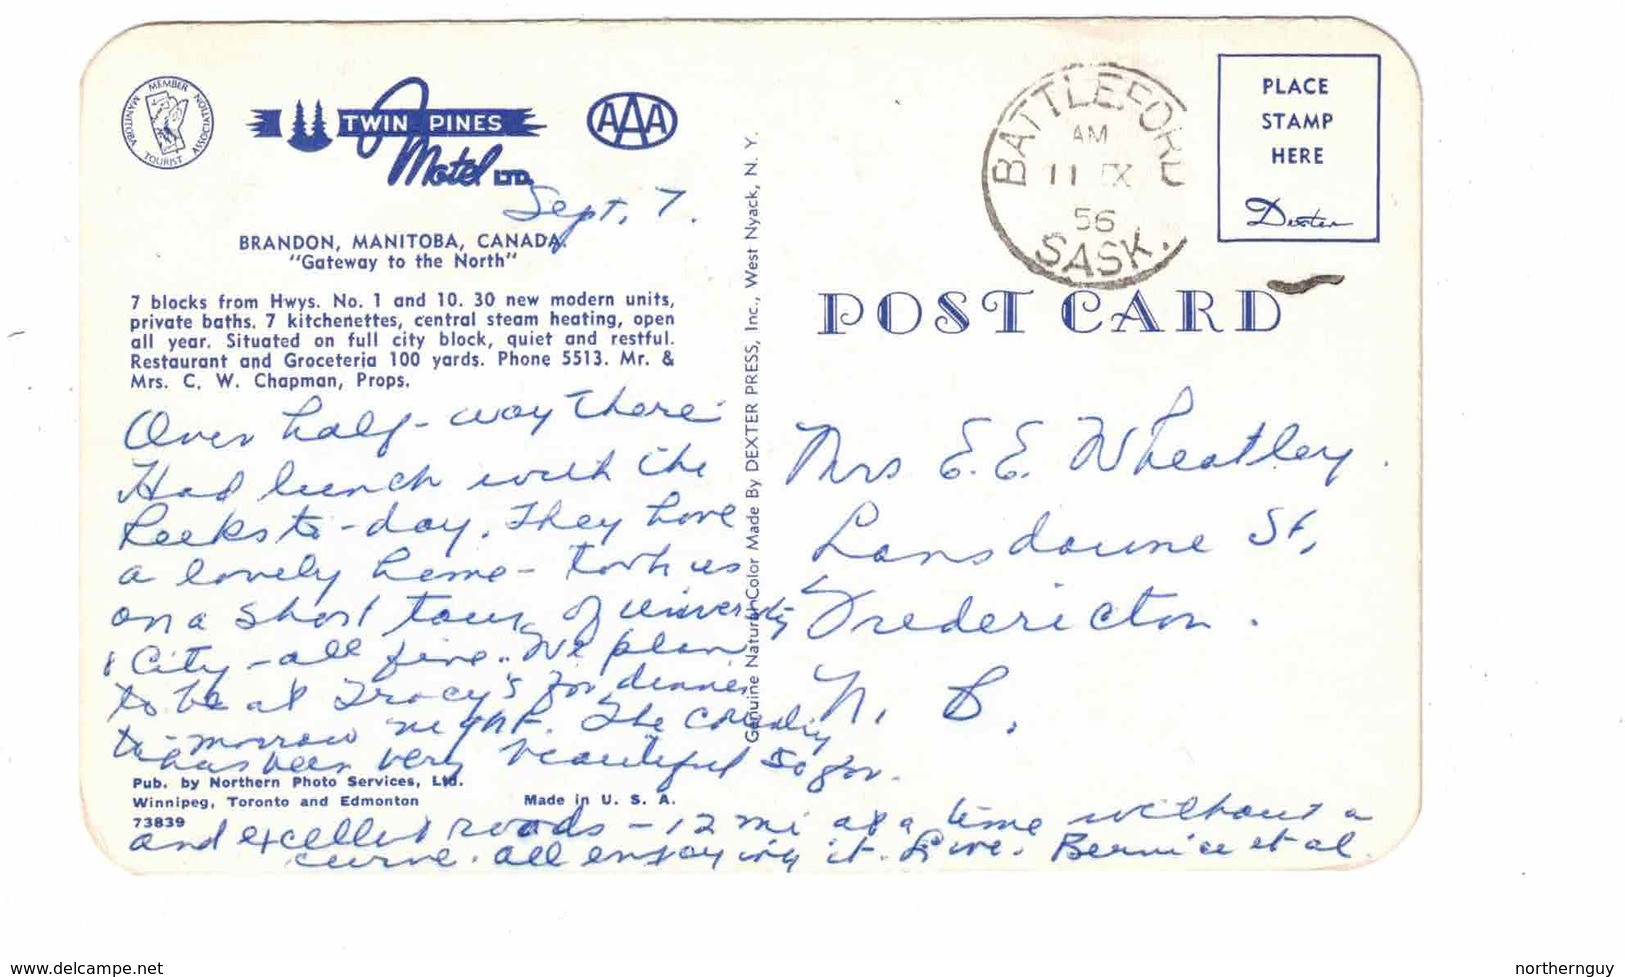 MEMBER
MANITOBA TOURIST ASSOCIATION
TWIN PINES
Motel LTD.
AAA
Sept. 7.
BRANDON, MANITOBA, CANADA.
"Gateway to the North"
7 blocks from Hwys. No. 1 and 10. 30 new modern units,
private baths. 7 kitchenettes, central steam heating, open
all year. Situated on full city block, quiet and restful.
Restaurant and Groceteria 100 yards. Phone 5513. Mr. &
Mrs. C. W. Chapman, Props.
Over half-way there
Had lunch with the
to-day. They have
a lovely home - took us
on a short tour of university
& City - all fine. We plan
to be at Tracy's for dinner
to-morrow night. The country
has been very beautiful so far.
and excellent roads - 12 mi at a time without a
curve. All enjoying it. Love. Bernice et al.
Pub. by Northern Photo Services, Ltd.
Winnipeg, Toronto and Edmonton
Made in U. S. A.
73839
Genuine Natural Color Made By DEXTER PRESS, Inc., West Nyack, N. Y.
BATTLEFORD
AM
11 IX
56
SASK.
PLACE
STAMP
HERE
Dexter
POST CARD
Mrs E. E. Wheatley
Lansdowne St,
Fredericton.
N. B.
www.delcampe.net
northernguy